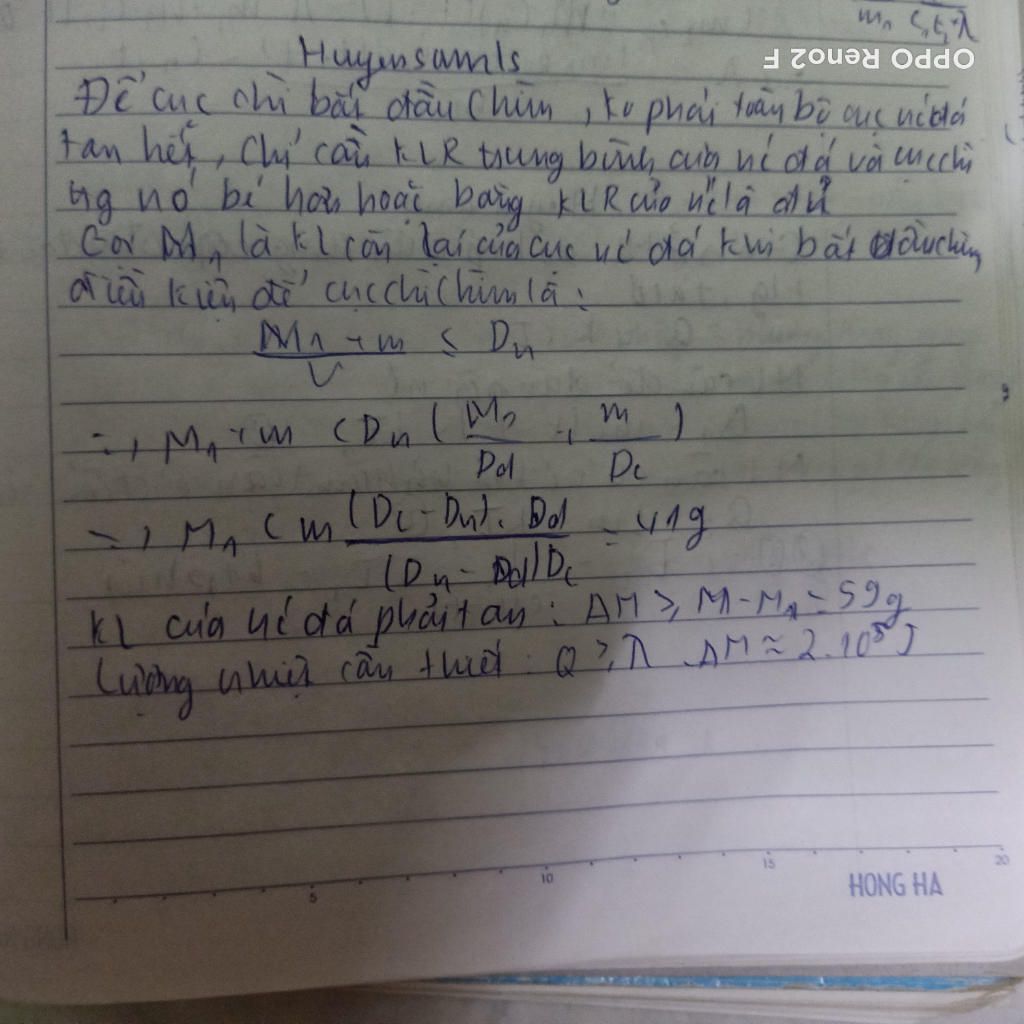 m₁ C₁t₁+λ
OPPO Reno2 F
Huyensamls
Để cục chì bắt đầu chìm, ko phải toàn bộ cục nc đá
tan hết, chỉ cần KLR trung bình của nc đá và cục chì
tg nó bé hơn hoặc bằng KLR của nc là đủ
Gọi M₁ là KL còn lại của cục nc đá khi bắt đầu chìm,
điều kiện để cục chì chìm là:
(M₁ + m)/V ≤ Dn
=> M₁ + m < Dn (M₁/Dd + m/Dc)
=> M₁ < m ((Dc - Dn). Dd)/((Dn - Dd)Dc) = 41g
KL của nc đá phải tan: ΔM ≥ M - M₁ = 59g
Lượng nhiệt cần thiết: Q ≥ λ.ΔM ≈ 2.10⁵ J
5
10
15
20
HONG HA